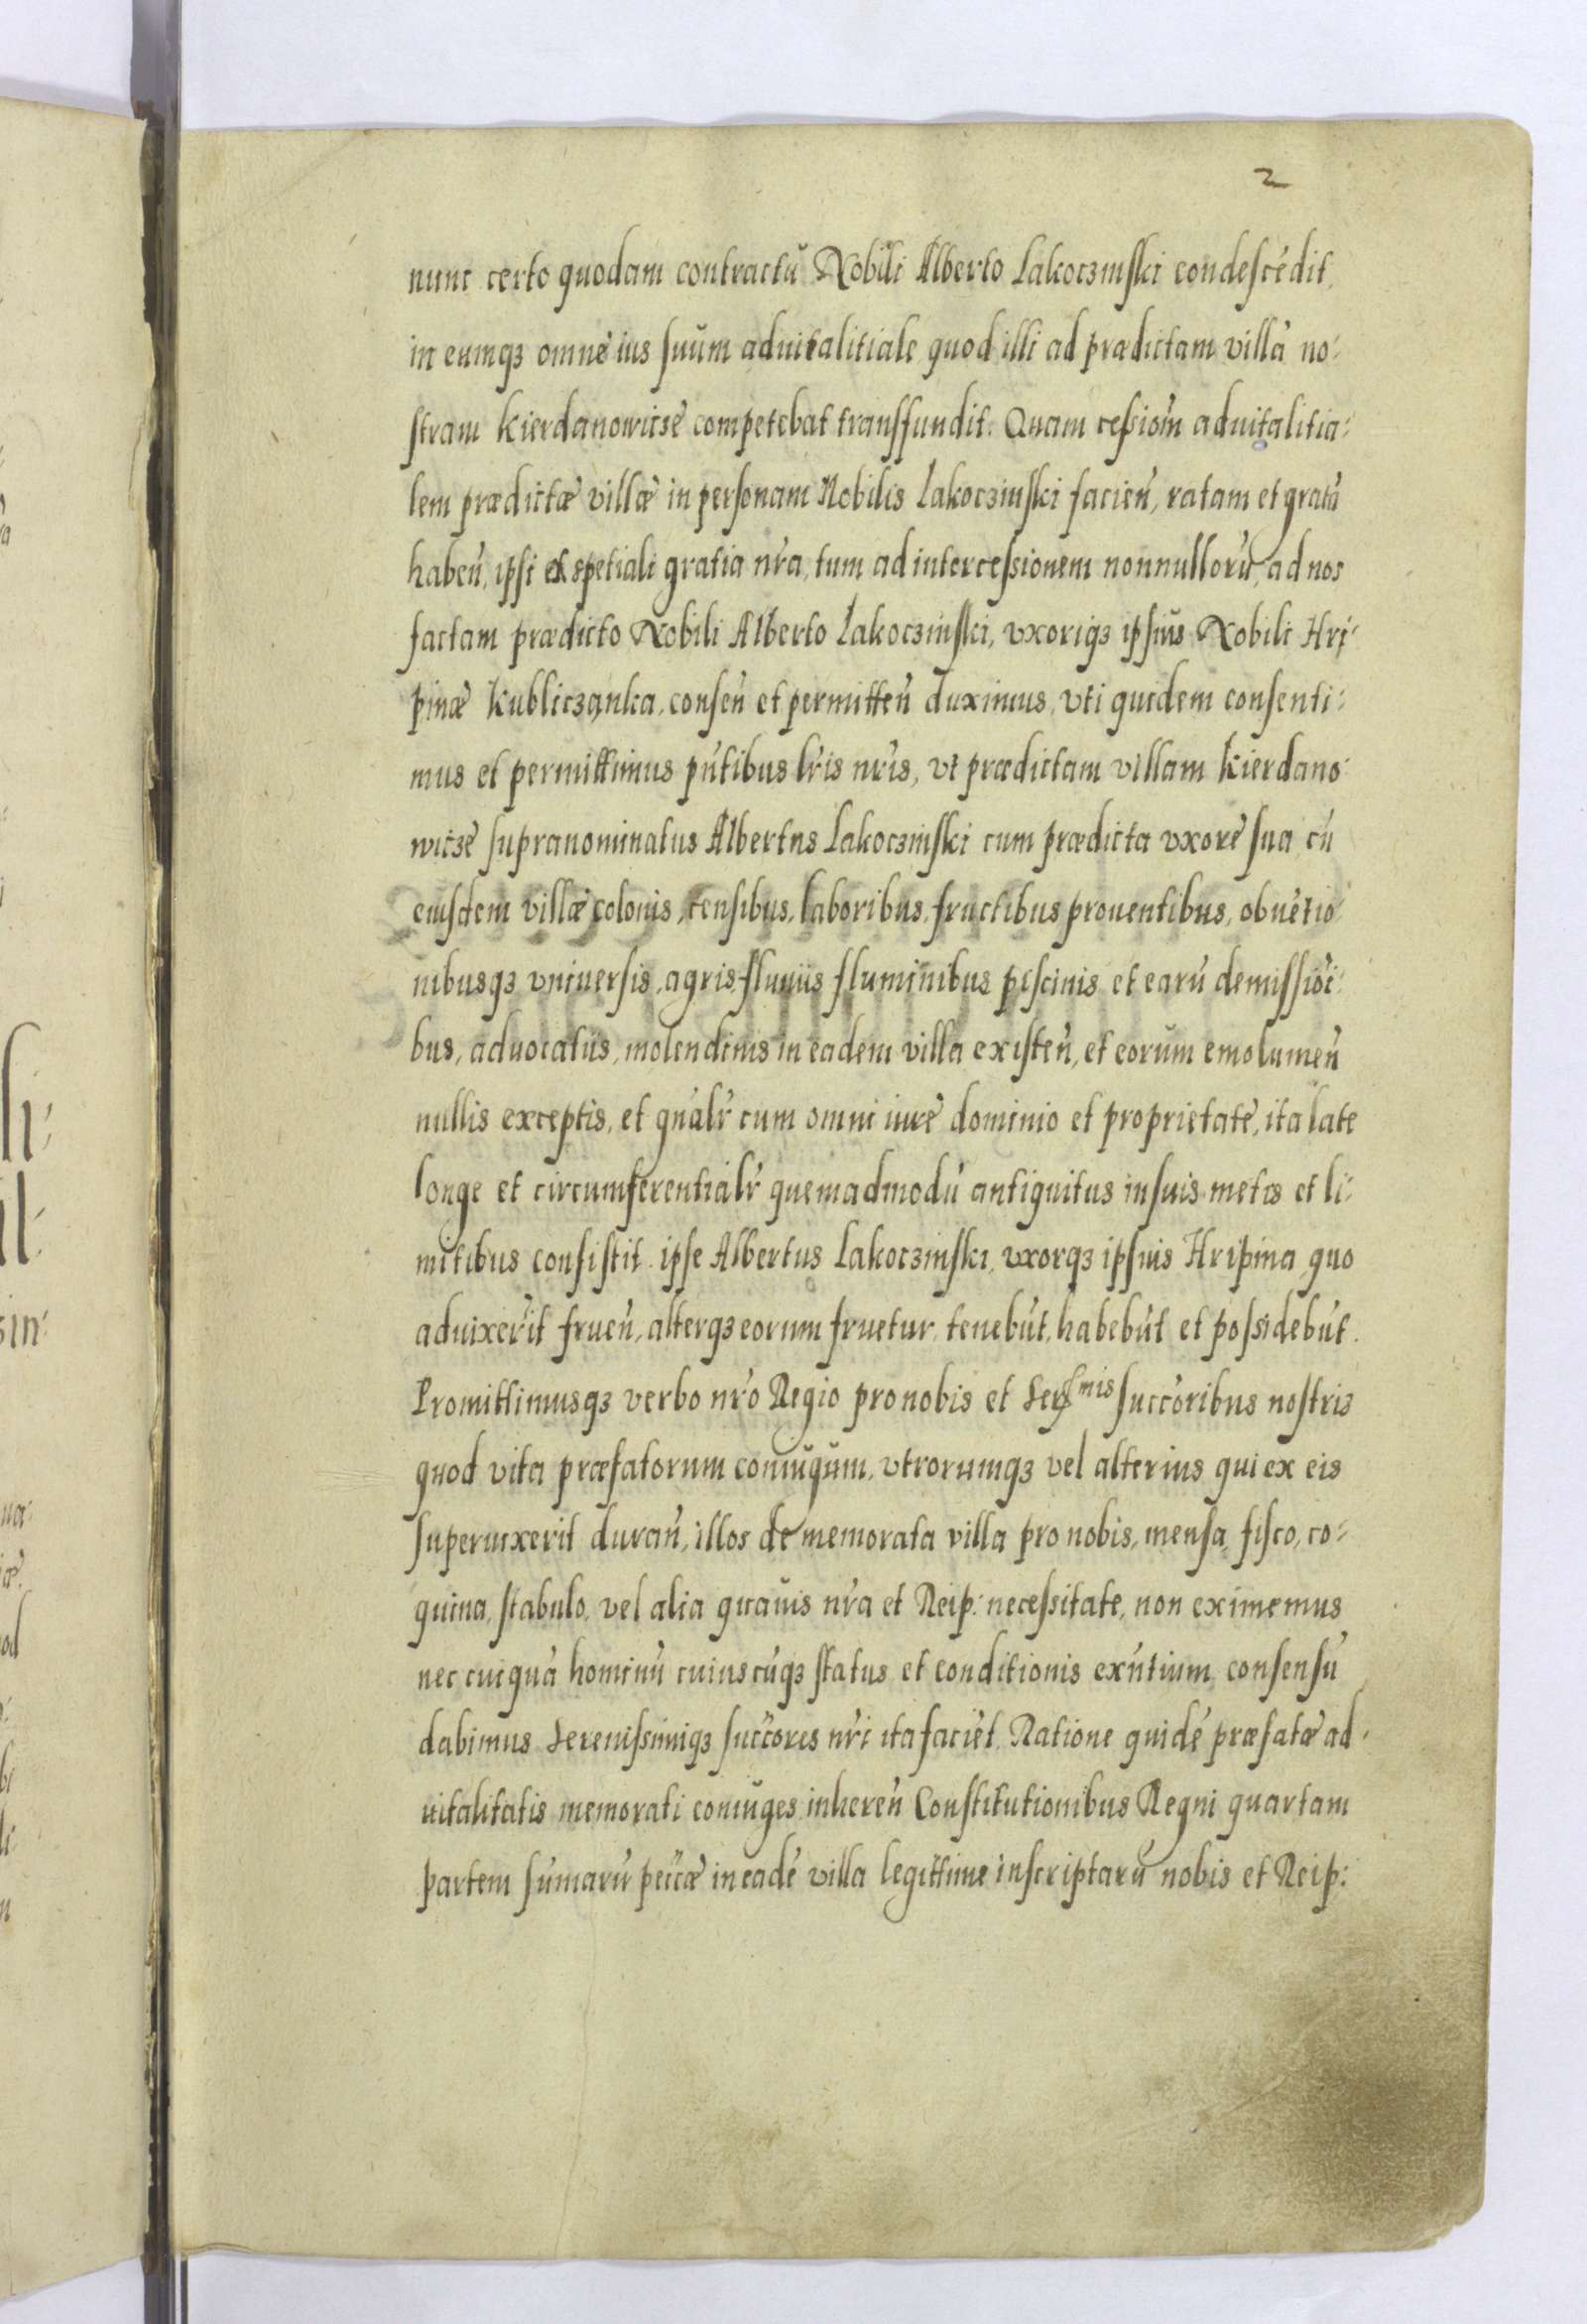 2
nunc certo quodam contractu Nobili Alberto Lakoczinski condescēdit,
in eumqȝ omne ius suum aduitalitiale quod illi ad prædictam villā no:
stram Kierdanowicze competebat transfundit. Quam cessiom̄ aduitalitia:
lem prædictæ villæ in personam Nobilis Lakoczinski facień, ratam et gratā
habeń, ipsi ex spetiali gratia nr̄a, tum ad intercessionem nonnullorū, ad nos
factam prædicto Nobili Alberto Lakoczinski, vxoriqȝ ipsius Nobili Hri:
pinæ Kubliczanka, conseń et permitteń duximus, vti quidem consenti:
mus et permittimus pn̄tibus lr̄is nr̄is, vt prædictam villam Kierdano:
wicze supranominatus Albertus Lakoczinski cum prædicta vxore sua, cū
eiusdem villæ colonis, censibus, laboribus, fructibus prouentibus, obuētio:
nibusqȝ vniuersis, agris, fluuiis fluminibus piscinis et earū demissiōi:
bus, aduocatiis, molendinis in eadem villa existeń, et eorum emolumeń
nullis exceptis, et gn̄alr̄ cum omni iure dominio et proprietate, ita late
longe et circumferentialr̄ quemadmodū antiquitus in suis metis et li:
mitibus consistit ipse Albertus Lakoczinski, vxorqȝ ipsius Hripina, quo
aduixerīt frueń, alterqȝ eorum fruetur, tenebūt, habebūt et possidebūt.
Promittimusqȝ verbo nr̄o Regio pro nobis et Serſmis succōribus nostris
quod vita præfatorum coniugum, vtrorumqȝ vel alterius qui ex eis
superuixerit durań, illos de memorata villa pro nobis, mensa, fisco, co:
quina, stabulo, vel alia quauis nr̄a et Reip: necessitate, non eximemus
nec cuiquā hominū cuiuscūqȝ status et conditionis exn̄tium, consensū
dabimus Serenissimiqȝ succōres nr̄i ita faciēt. Ratione quidē præfatæ ad:
uitalitatis memorati coniuges inhereń Constitutionibus Regni quartam
partem sūmarū pecc̄æ in eadē villa legittime inscriptarū nobis et Reip: